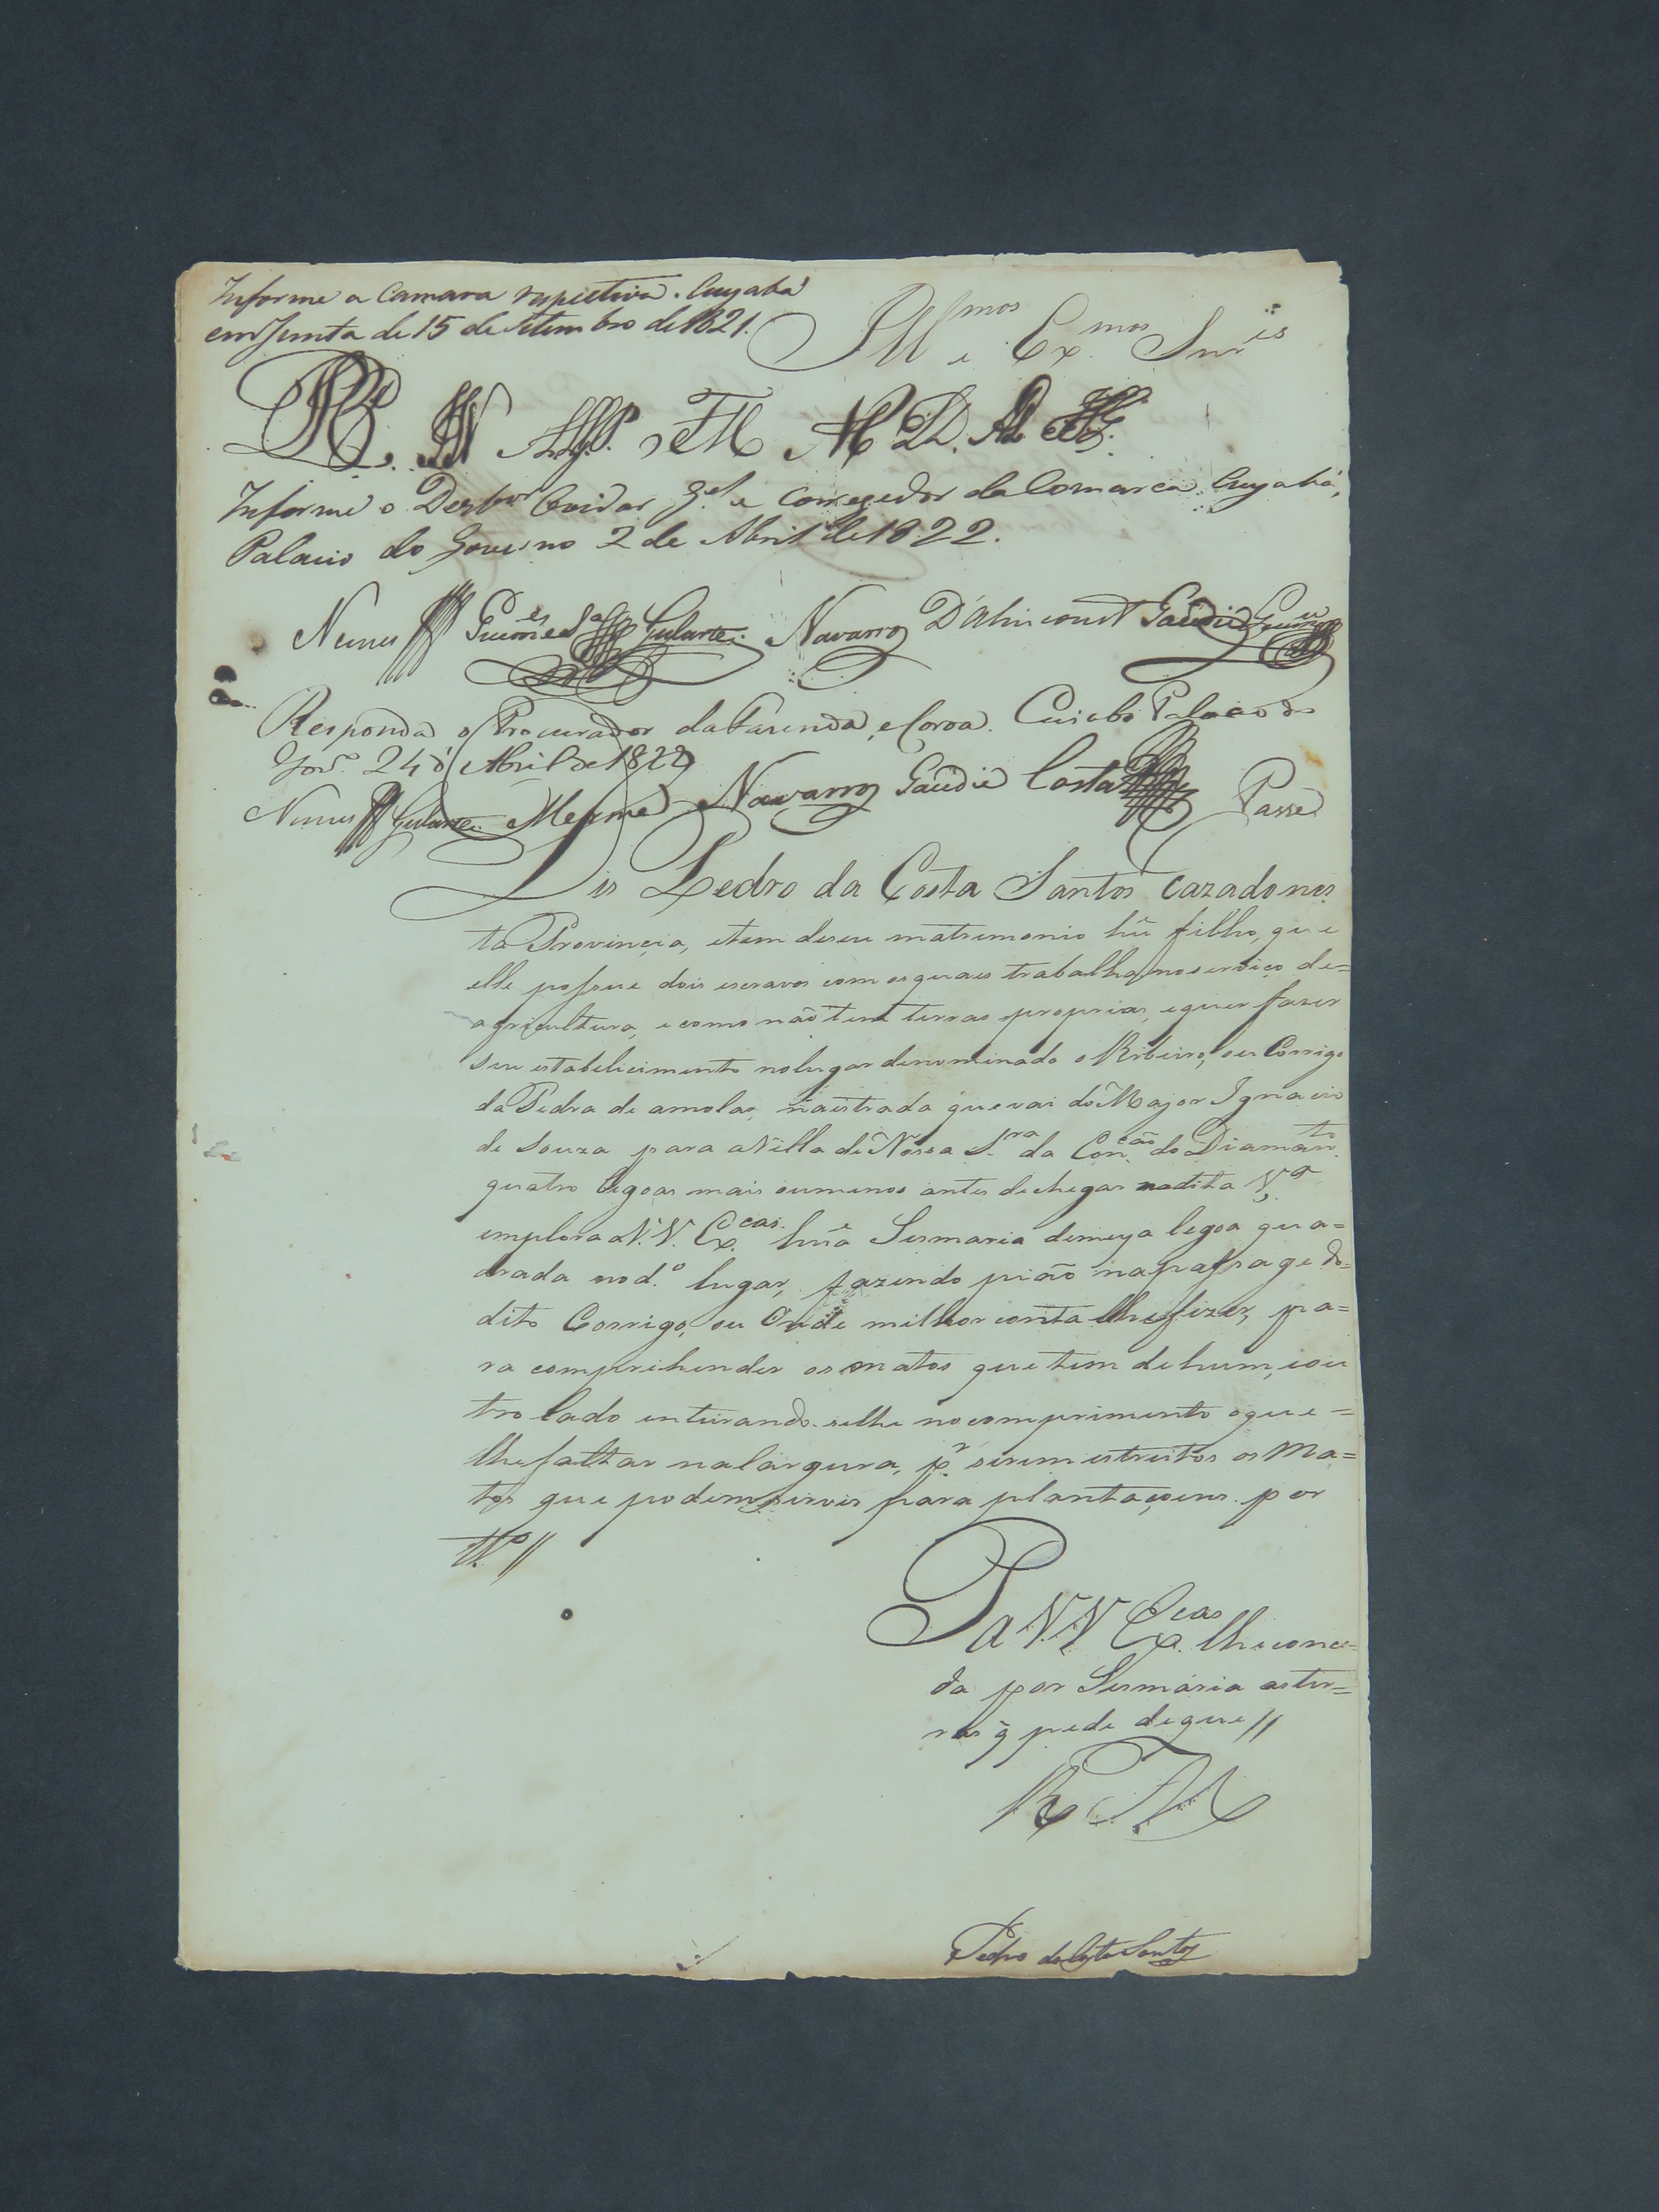 Informe a Camara respectiva. Cuyabá
em Junta de 15 de Setembro de 1821.
Ill.mos e Ex.mos Snr.es
Informe o Dezbor Ouvidor g.el e Corregedor da Comarca. Cuyabá,
Palacio do Governo 2 de Abril de 1822.
Nunes Guim.es Gularte. Navarro D'Alincourt Gaudie
Responda o Procurador da Fazenda, e Coroa. Cuiabá Palacio do
Gov.o 24 d' Abril de 1822
Nunes Gularte. Navarro Gaudie Costa Passe
Dis Pedro da Costa Santos cazado nes
ta Provinçia, e tem de seu matrimonio hũ filho, que
elle possue dois escravos com os quaes trabalha no serviço de=
agricultura, e como não tem terras proprias, e quer fazer
seu estabelicimento no lugar denominado o Ribeiro, ou Corrigo
da Pedra de amolar, na estrada que vai do Major Ignacio
de Souza para a Villa de Nossa S.ra da Con.cão do Diaman.to
quatro legoas mais ou menos antes de chegar na dita V.a
emplora a V.V. Ex.cas hũa Sesmaria de meya legoa qua=
drada no d.o lugar, fazendo pião na passage do=
dito Corrigo, ou Onde milhor conta lhe fizer, pa=
ra comprihender os matos que tem de hum, e ou
tro lado enteirando-selhe no comprimento o que=
lhe faltar na largura, p.r serem estreitos os Ma=
tos que podem servir para plantaçoens por
tt.o //
P a V.V. Ex.cas lhe conce=
da por Sesmaria as ter=
ras q̃ pede de que //
R M
Pedro da Costa Santos